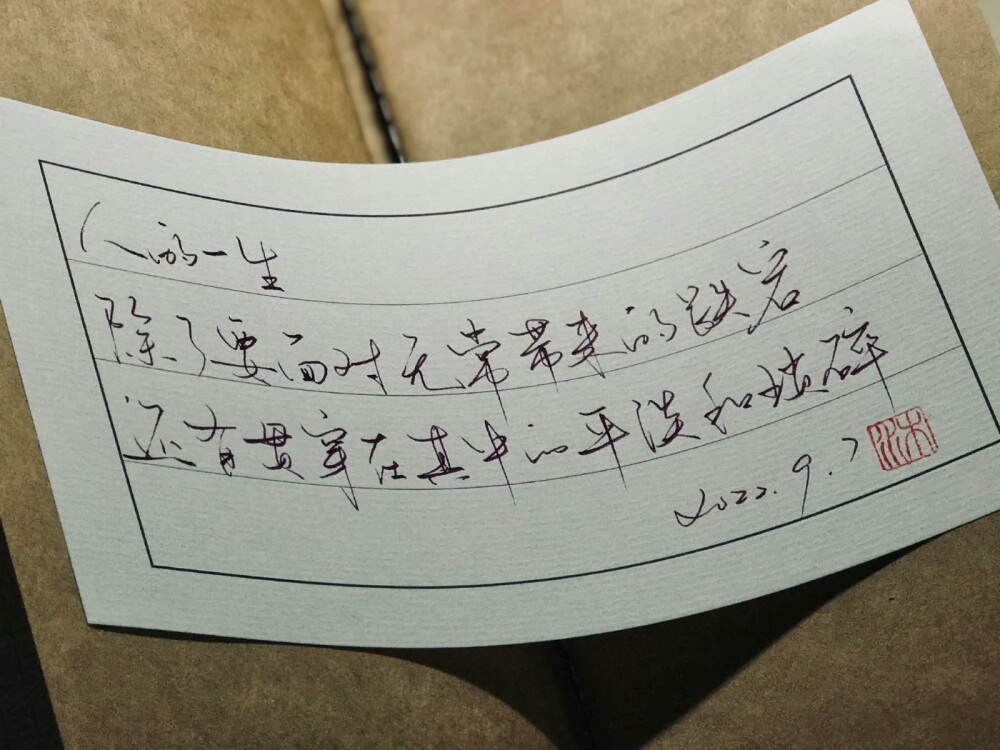 人的一生
除了要面对无常带来的跌宕
还有贯穿在其中的平淡和琐碎
2022.9.7